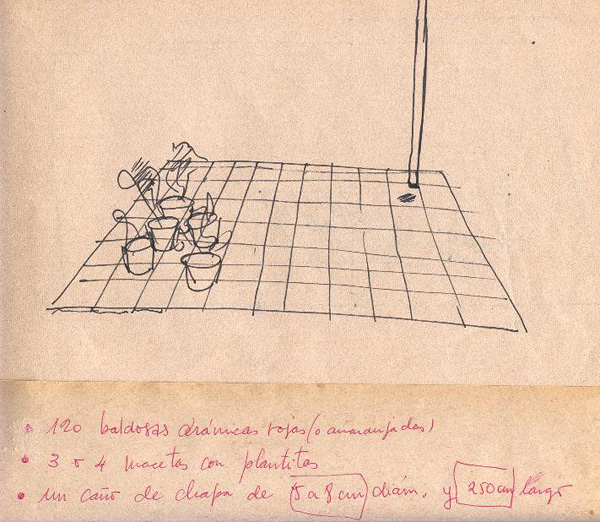 • 120 baldosas cerámicas rojas (o anaranjadas)
• 3 o 4 macetas con plantitas
• un caño de chapa de (5 a 8 cm) diám. y 250 cm largo